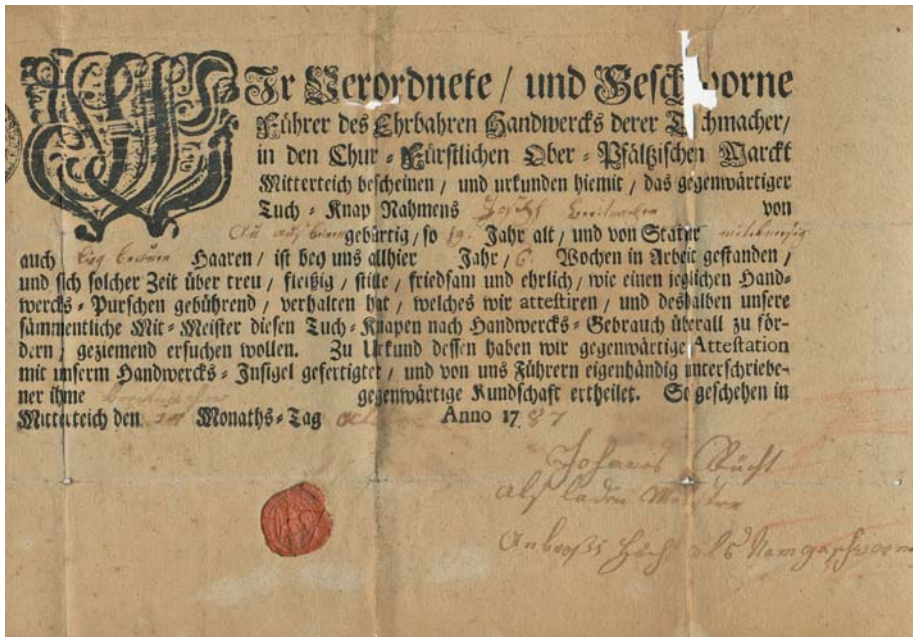 WIr Verordnete / und Geschworne
Führer des Ehrbahren Handwercks derer Tuchmacher /
in den Chur-Fürstlichen Ober-Pfältzischen Marckt
Mitterteich bescheinen / und urkunden hiemit / das gegenwärtiger
Tuch-Knap Nahmens Joseph von
gebürtig / so 19. Jahr alt / und von Statur
auch Haaren / ist bey uns allhier Jahr / 6. Wochen in Arbeit gestanden /
und sich solcher Zeit über treu / fleißig / stille / friedsam und ehrlich / wie einen jeglichen Hand-
wercks-Purschen gebührend / verhalten hat / welches wir attestiren / und deshalben unsere
sämmentliche Mit-Meister diesen Tuch-Knapen nach Handwercks-Gebrauch überall zu för-
dern / geziemend ersuchen wollen. Zu Urkund dessen haben wir gegenwärtige Attestation
mit unserm Handwercks-Insigel gefertigter / und von uns Führern eigenhändig unterschriebe-
ner ihme gegenwärtige Kundschaft ertheilet. So geschehen in
Mitterteich den Monaths-Tag Anno 1787
Johannes
als laden Meister
als